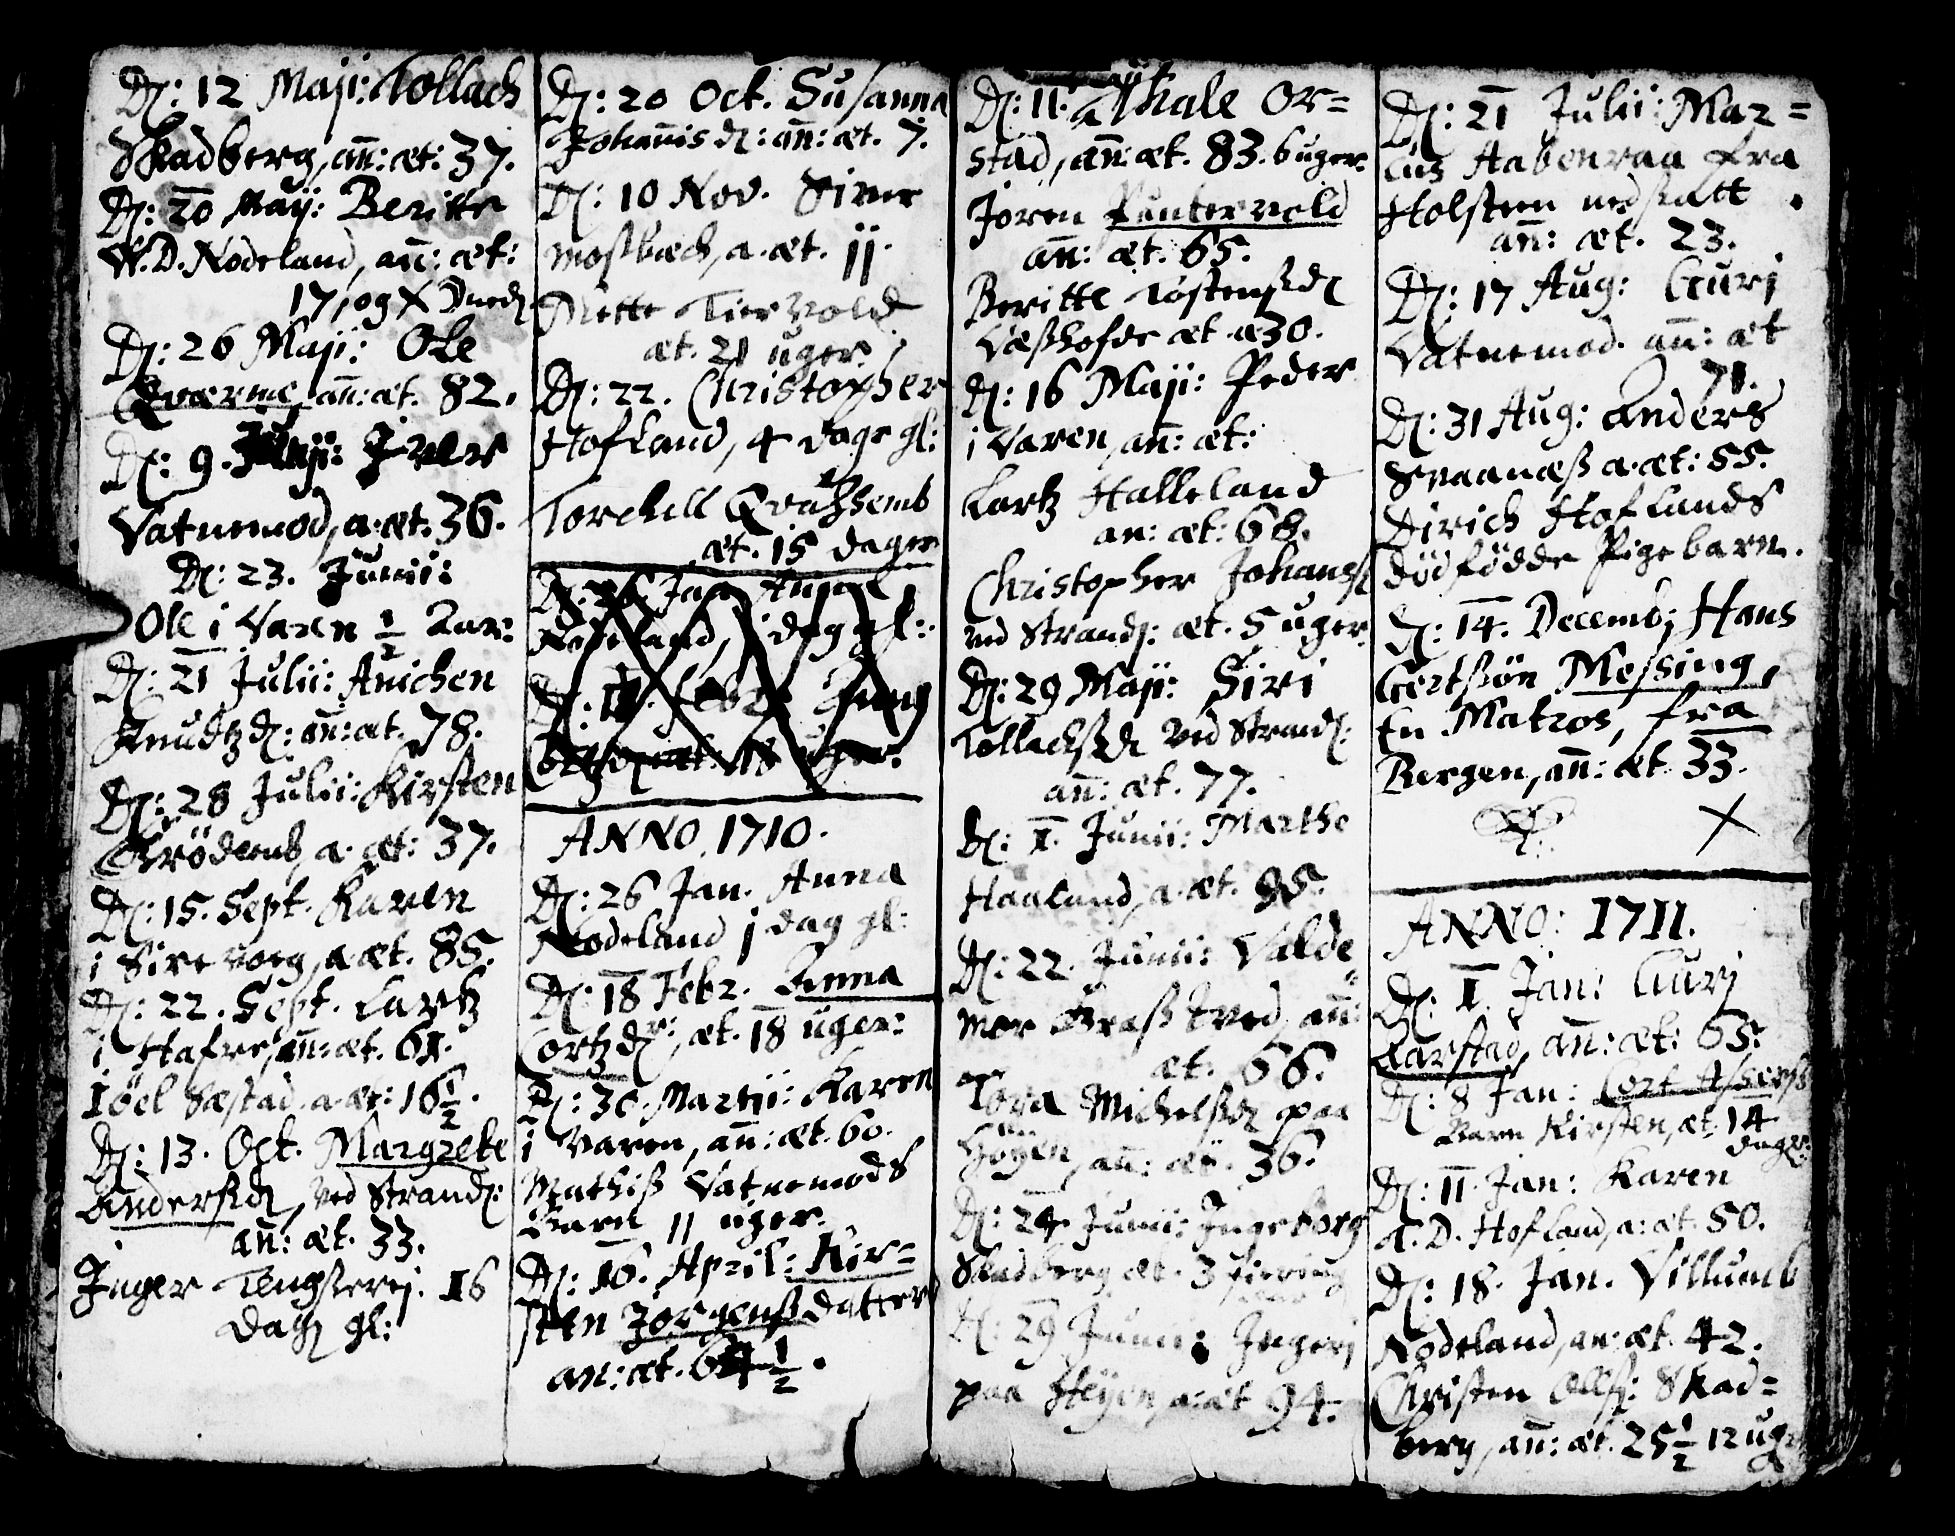 D: 12 Maji: Tollach
Skadberg, añ: æt: 37.
D: 20 Maij: Beritte
N. D. Nodeland, añ: æt:
17, og
D: 26 Maji: Ole
Qværme, añ: æt. 82.
D: 9. Iver
Vatnemod, a: æt. 36.
D: 23. Junii:
Ole i Varen 1/2 Aar:
D: 21 Julii: Anichen
Knudtz d: añ: æt. 78.
D: 28 Julii: Kirsten
Grödemb, a. æt: 37.
D: 15. Sept. Karen
i Sirevoeg, a æt. 85.
D: 22. Sept. Lartz
i Hafre, añ: æt. 61.
Iöel Sæstad. a. æt: 16 1/2.
D: 13. Oct. Margrete
Andersd, ved Strand:
añ: æt. 33.
Inger Tengsterej. 16
Dag gl:
D: 20 Oct. Susanna
Johañis d: añ: æt. 7.
D: 10 Nov. Siver
Mosbæch, a. æt. jj.
Mette Tiervold
æt. 21 uger
D: 22. Christopher
Hofland, 4 dage gl:
Torchell Qvahsemb
æt. 15 dager
D: 26 Jan Anna
Nodeland, j dag gl:
D: 18. Febr. Anna
Cortz æt: 18 uger.
ANNO 1710.
D: 26 Jan. Anna
Nodeland j dag gl:
D: 18 Febr. Anna
Cortz dr, æt. 18 uger:
D: 30. Martii: Karen
i Varen, añ: æt. 60.
Mathiß Vatnemods
Barn 11 uger.
D: 16. April: Kir=
sten Jörgenß datter
an: æt. 64 1/2.
D: 11. Askale Or=
stad, añ: æt. 83. 6 uger.
Jören Puntervold
añ: æt. 65.
Beritte Tostensd
Væshofde æt a 30.
D: 16 Maji: Peder
i Varen, añ: æt:
Lartz Halleland
an: æt: 68.
Christopher Johans
ved Strand: æt. 5 uger.
D: 29 Maji: Siri
Tollachsd ved Strand:
añ: æt. 77.
D: 1. Junii: Marthe
Haaland, a. æt. 85.
D: 22. Junii: Valde=
mor Graß tved, añ:
æt. 66.
Tora Michelsd paa
Höyen, añ: æt. 36.
D: 24 Junii: Ingeborg
Skadberg æt. 3
D: 29 Junii: Ingerj
paa Höyen, a: æt 94.
D: 21 Julii: Mar=
cus Aabenraa fra
Holsteen
añ: æt. 23.
D: 17 Aug: Gurj
Vatnemod. añ: æt
71.
D: 31 Aug: Anders
Svaanæß a. æt: 55.
Dirich Hoflands
dödfödde Pigebarn.
D: 14. Decemb; Hans
Gertsön Messing,
En Matros, fra
Bergen, añ: æt 33.
ANNO: 1711.
D: 1. Jan: Gurj
Aarstad, añ: æt: 65.
D: 8 Jan: Cort
Barn Kirsten, æt. 14
dager.
D: 11. Jan: Karen
A. D. Hofland, a: æt. 50.
D: 18. Jan. Villumb
Nodeland, an: æt. 42.
Christen Olß: Skad=
berg, añ: æt. 25 1/2 12 ug